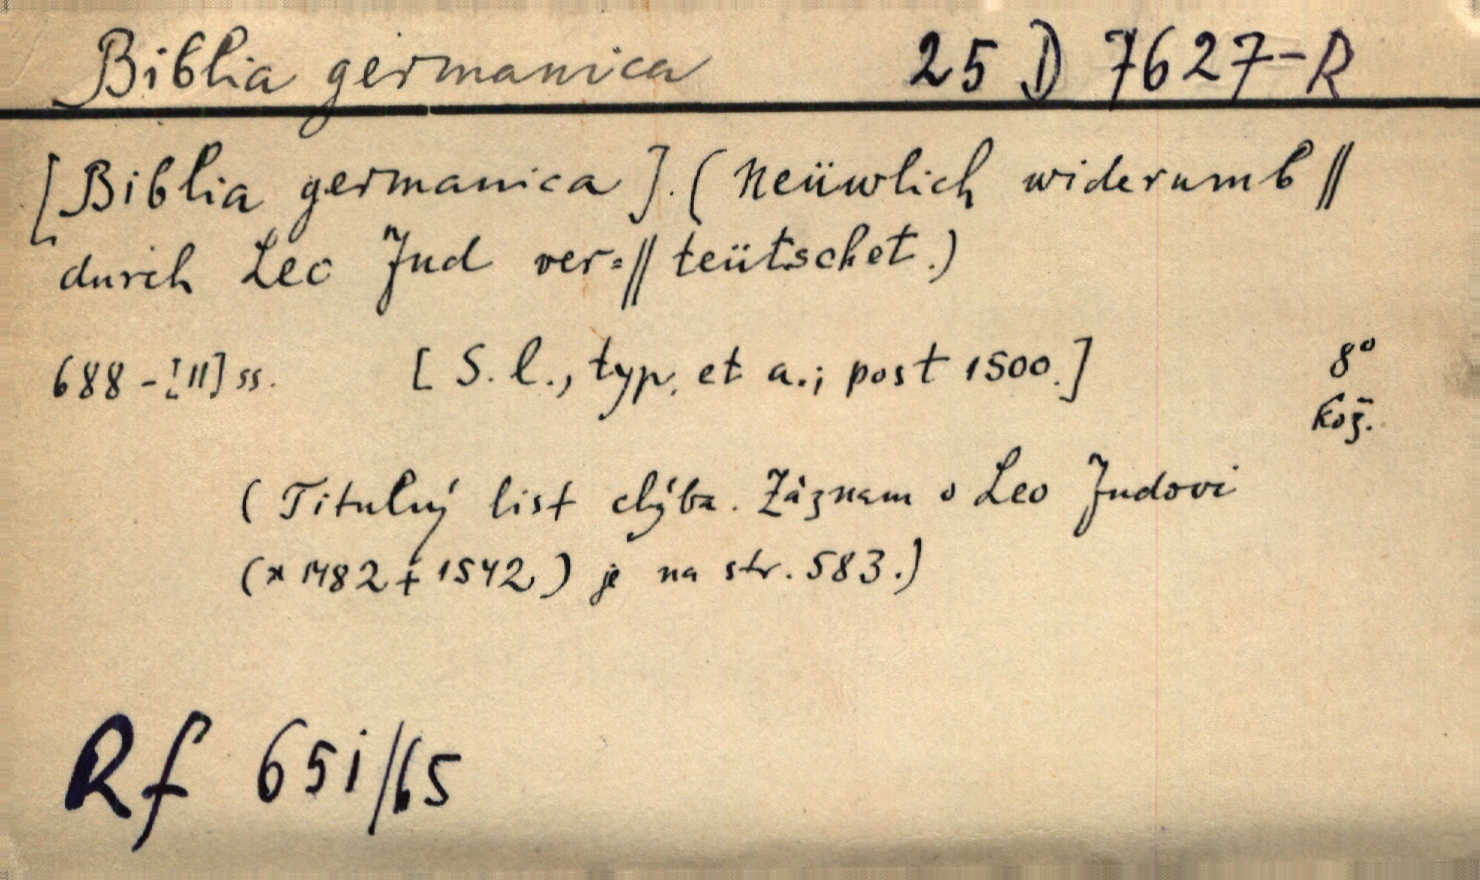 Biblia germanica 25 D 7627-R
[Biblia germanica]. (Neüwlich widerumb ||
durch Leo Jud ver=|| teütschet.)
688-[11] ss. [S. l., typ. et a.; post 1500.] 8°
Kož.
(Titulný list chýba. Záznam o Leo Judovi
(* 1482 + 1542) je na str. 583.)
Rf 651/65